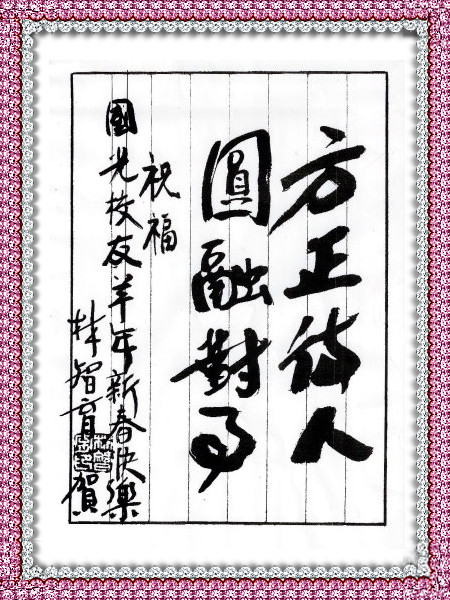 方正待人
圓融對事
祝福
國光校友羊年新春快樂
林智育賀